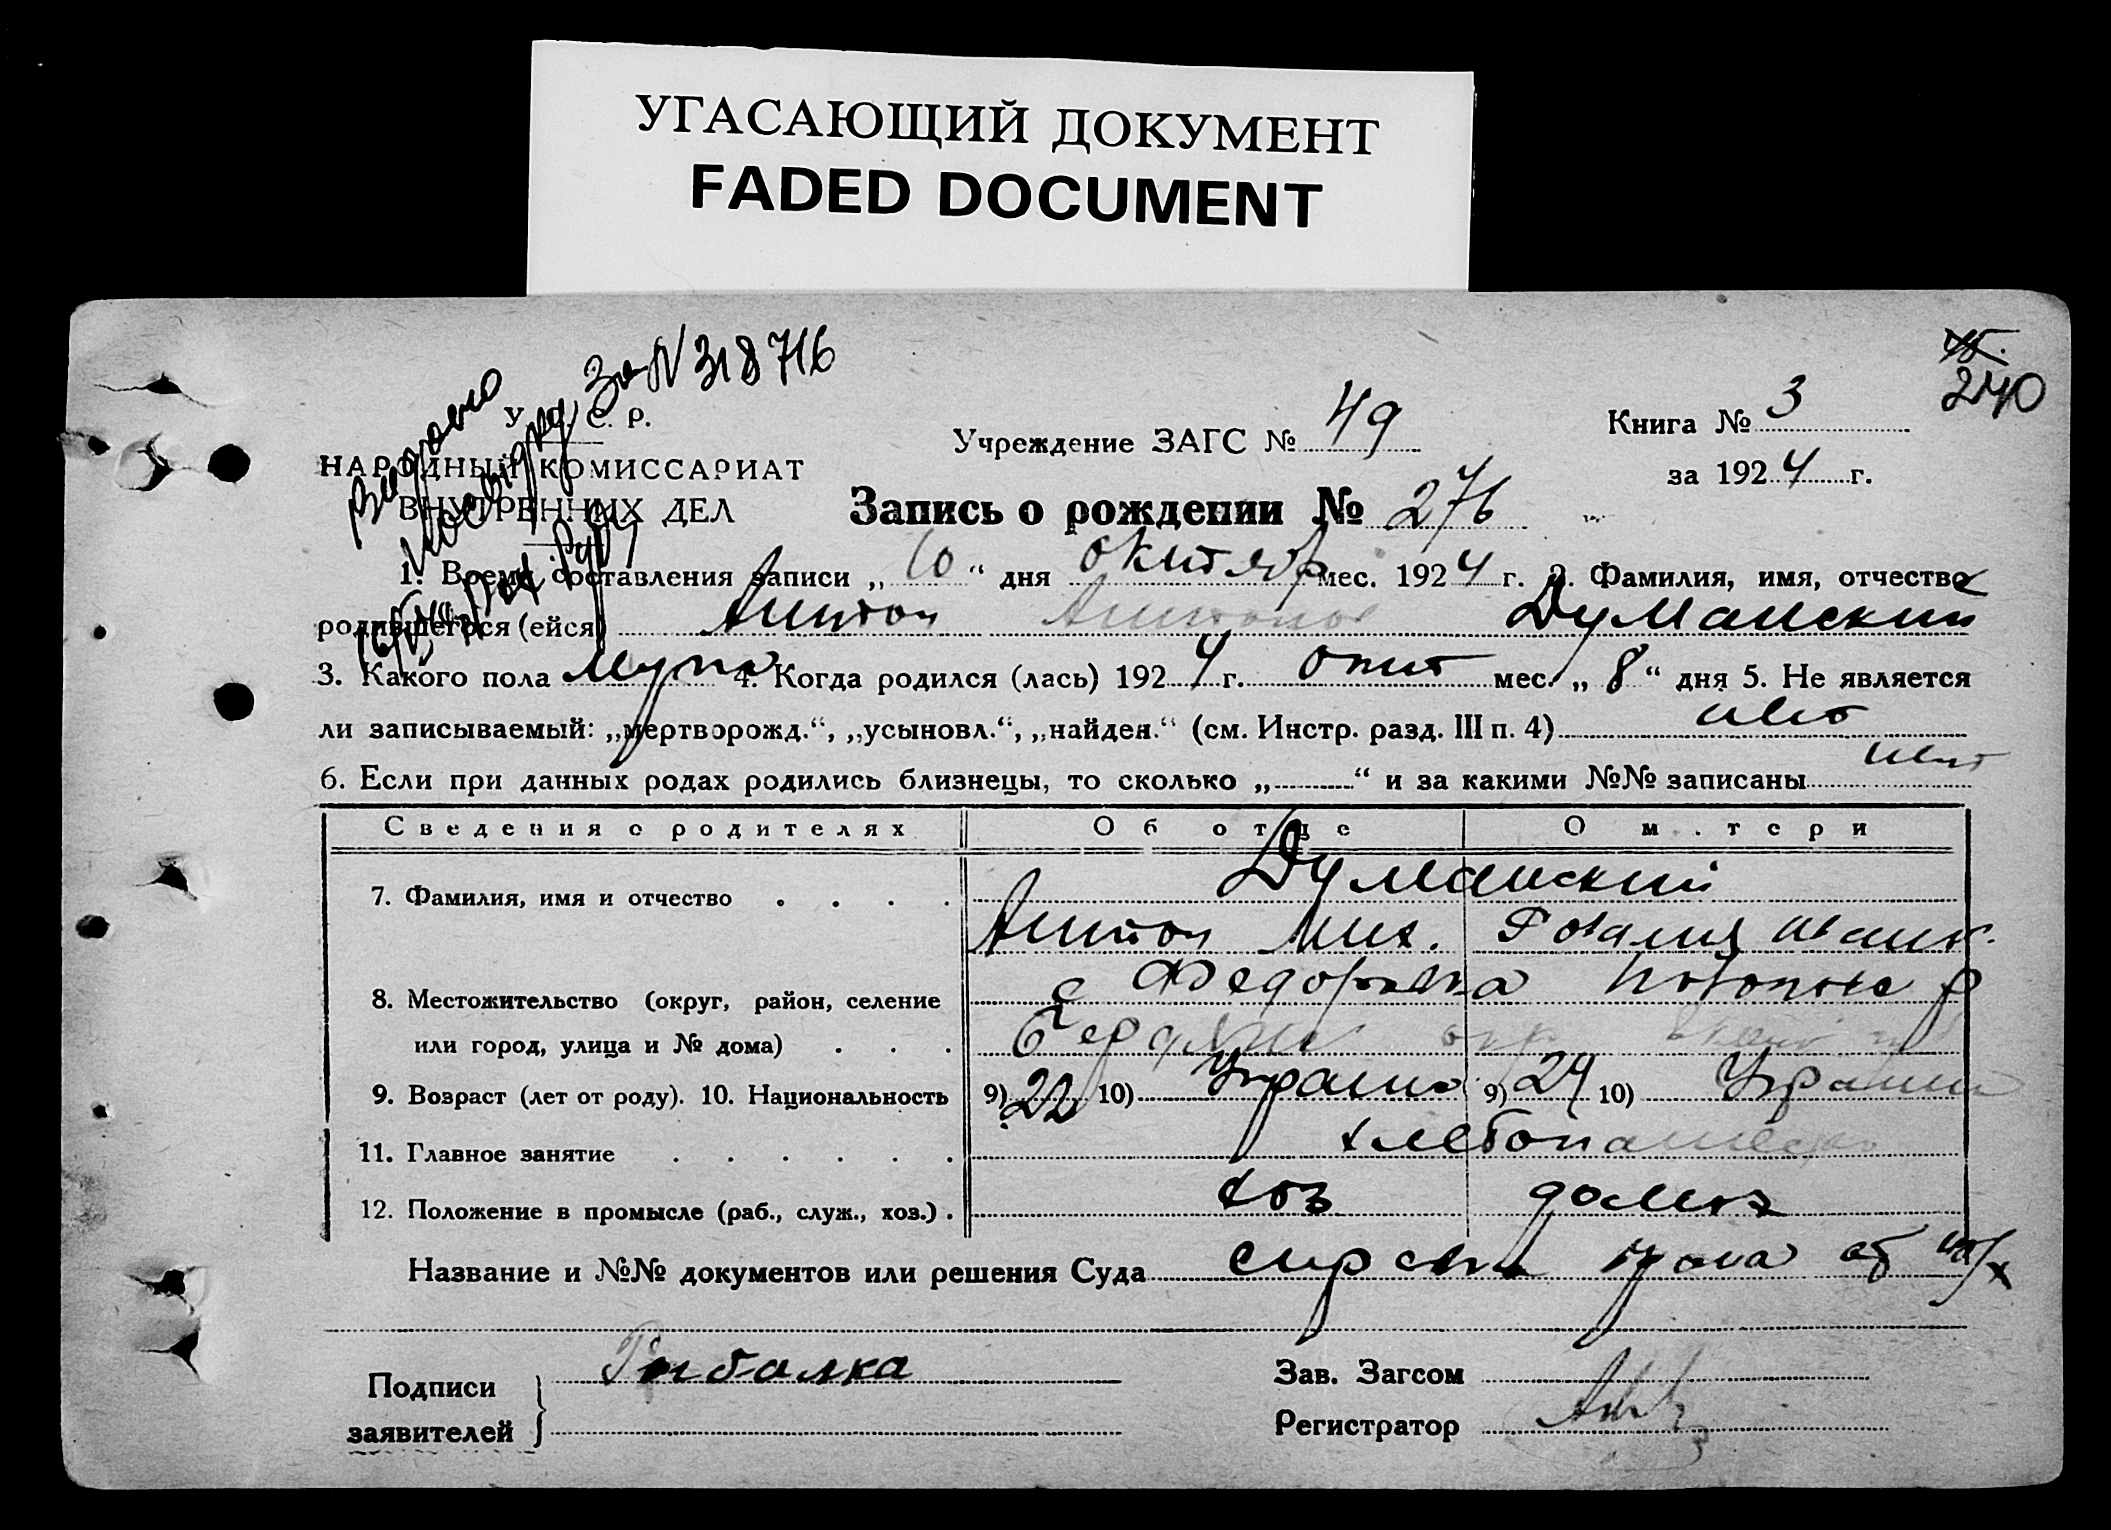 УГАСАЮЩИЙ ДОКУМЕНТ
FADED DOCUMENT
За N 318716
Видано
240
У. С. С. Р.
НАРОДНЫЙ КОМИССАРИАТ
ВНУТРЕННИХ ДЕЛ
Учреждение ЗАГС № 49
Книга № 3
за 1924 г.
Запись о рождении № 276
1. Время составления записи „10“ дня октябр мес. 1924 г. 2. Фамилия, имя, отчество
родившегося (ейся) Антон Антонов Думанский
3. Какого пола Мущ 4. Когда родился (лась) 1924 г. окт мес. „8“ дня 5. Не является
ли записываемый: „мертворожд.“, „усыновл.“, „найден.“ (см. Инстр. разд. III п. 4) нет
6. Если при данных родах родились близнецы, то сколько „ “ и за какими №№ записаны нет
Сведения о родителях Об отце О матери
7. Фамилия, имя и отчество Думанский
Антон Мих. Розалия Иван.
8. Местожительство (округ, район, селение с Федоровка
или город, улица и № дома) Бердянс окр
9. Возраст (лет от роду). 10. Национальность 9) 22 10) Украин 9) 24 10) Украин
11. Главное занятие хлебопашество
12. Положение в промысле (раб., служ., хоз.) хоз домхоз
Название и №№ документов или решения Суда
Подписи заявителей Рибалка
Зав. Загсом
Регистратор